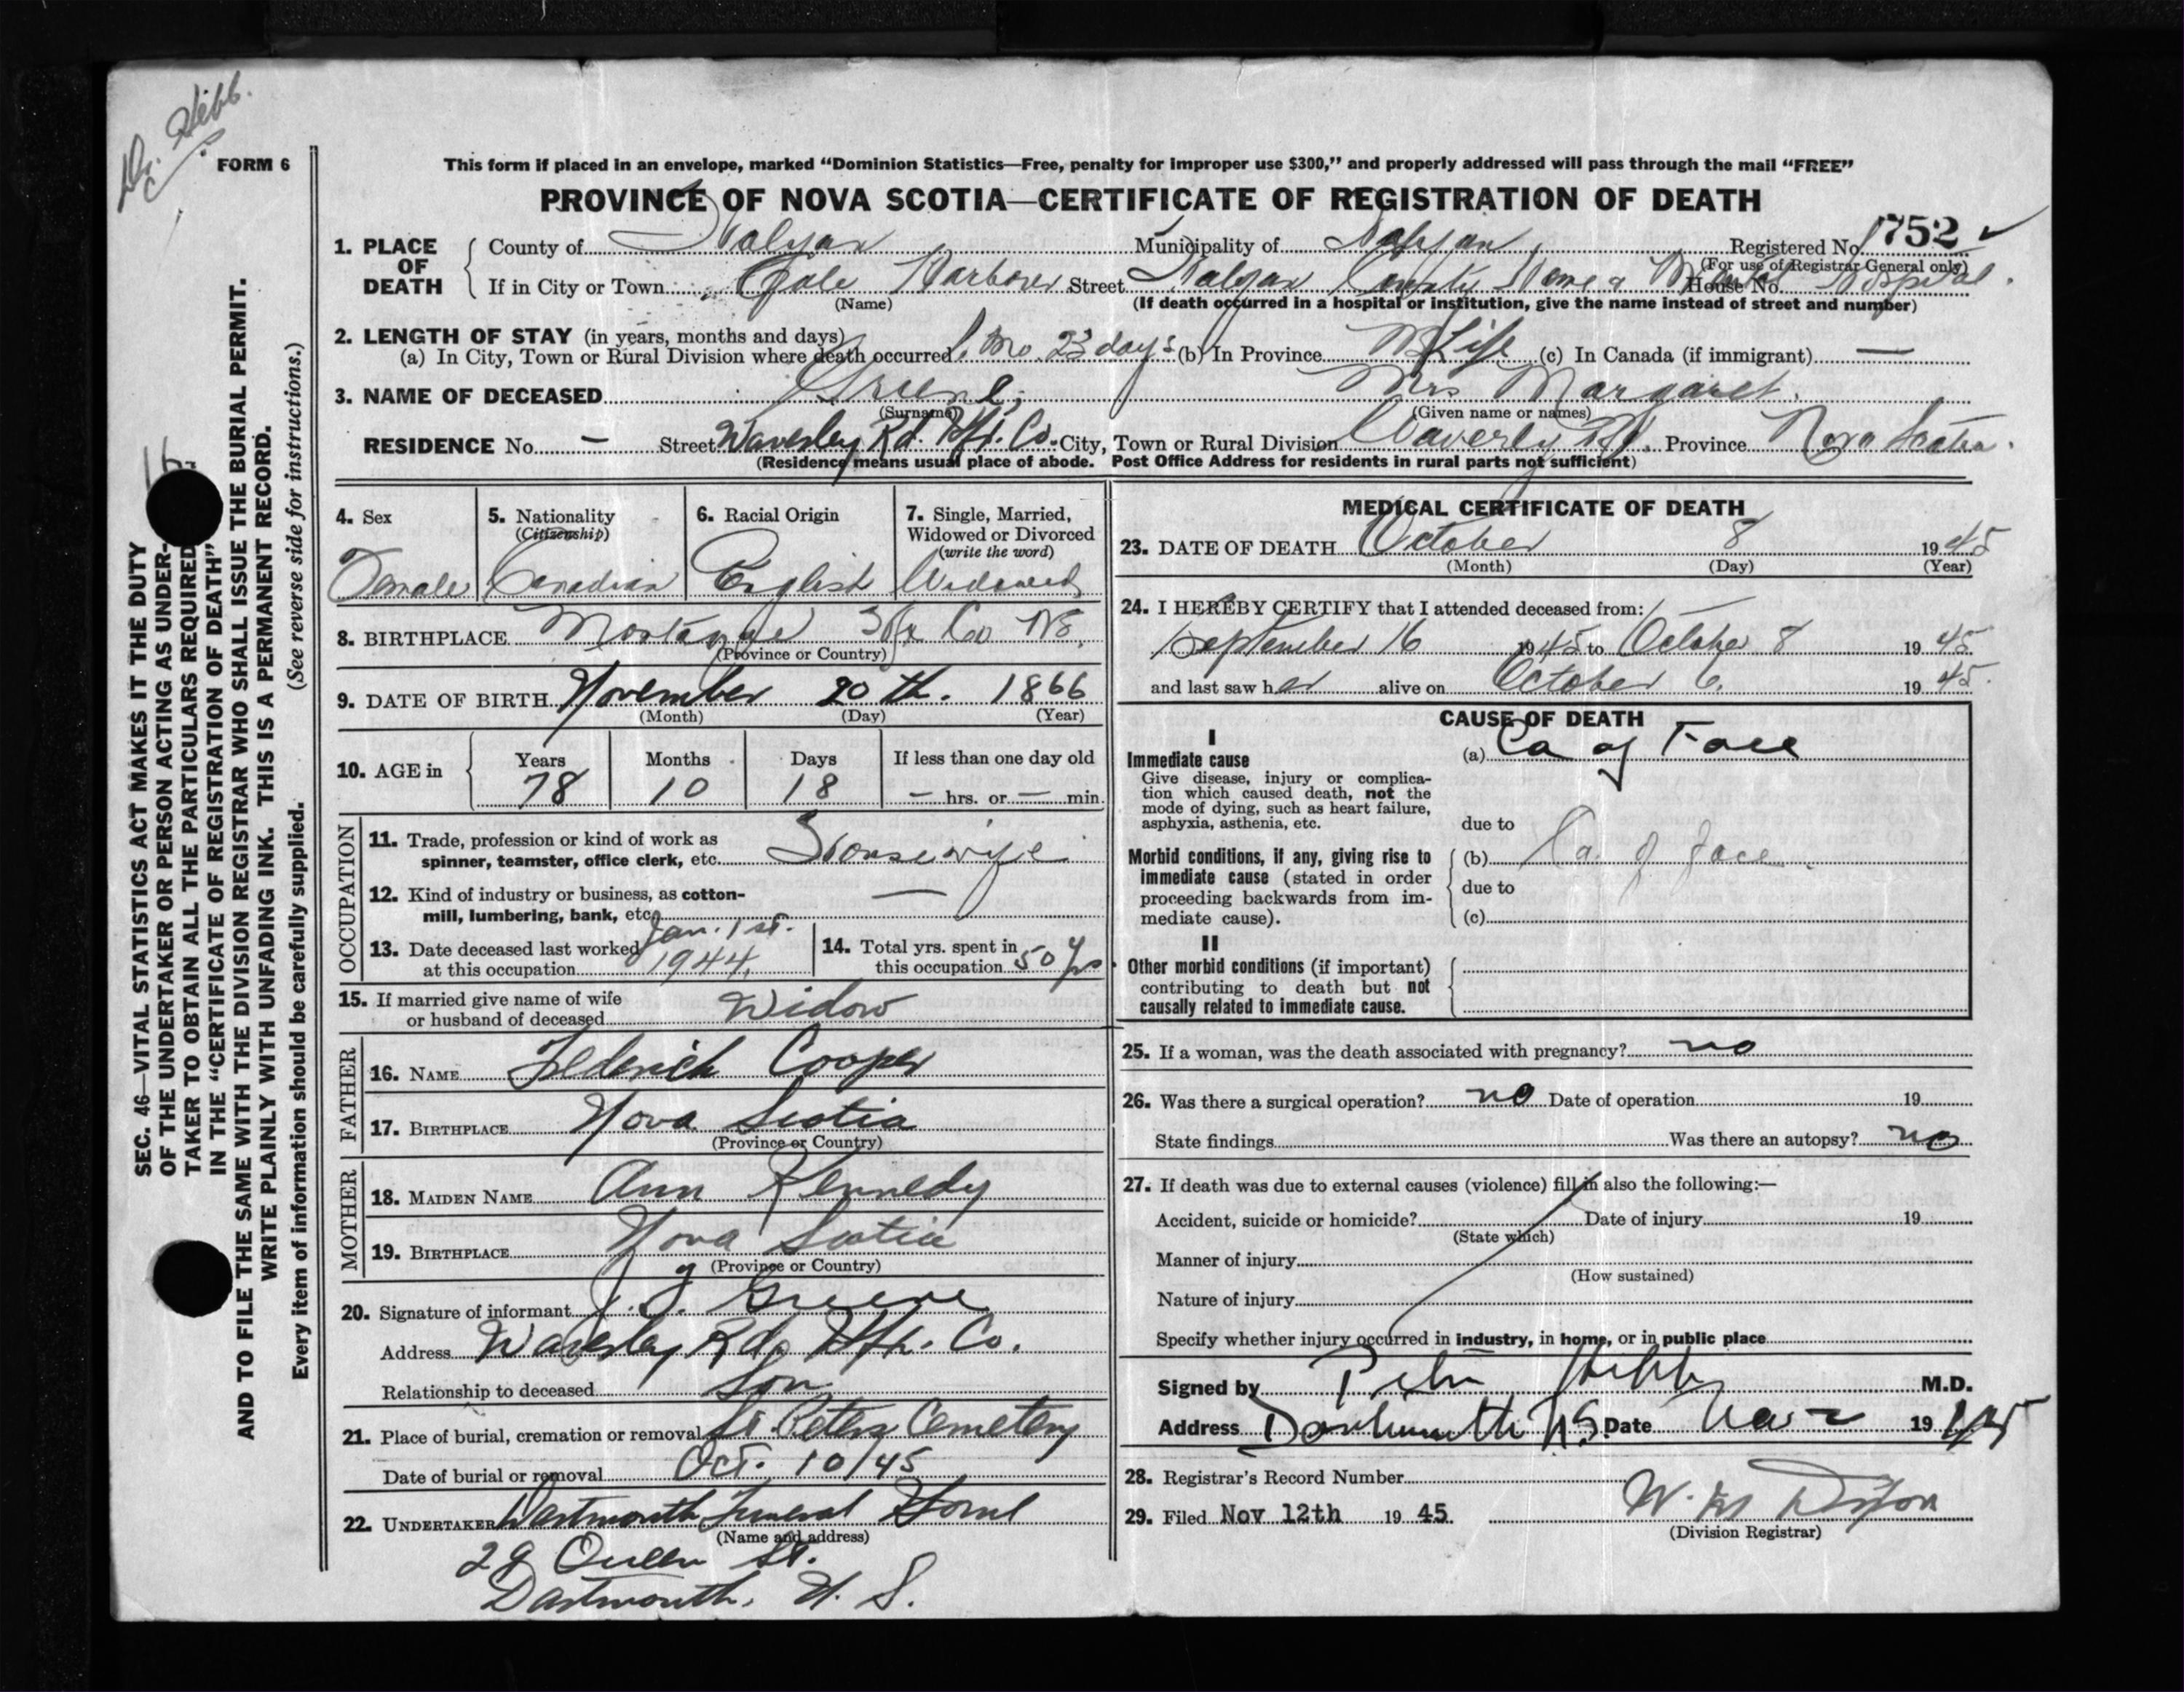 Dr. Hibb.
FORM 6
This form if placed in an envelope, marked “Dominion Statistics—Free, penalty for improper use $300,” and properly addressed will pass through the mail “FREE”
PROVINCE OF NOVA SCOTIA—CERTIFICATE OF REGISTRATION OF DEATH
1. PLACE OF DEATH
County of Halifax Municipality of Halifax Registered No. 1752
(For use of Registrar General only)
If in City or Town Cole Harbour Street Halifax County Home & Mental Hospital House No.
(Name) (If death occurred in a hospital or institution, give the name instead of street and number)
2. LENGTH OF STAY (in years, months and days)
(a) In City, Town or Rural Division where death occurred 1 mo 23 days (b) In Province Life (c) In Canada (if immigrant) —
3. NAME OF DECEASED Greene, Mrs Margaret.
(Surname) (Given name or names)
RESIDENCE No. — Street Waverley Rd. Hfx. Co. City, Town or Rural Division Waverly Rd. Province Nova Scotia.
(Residence means usual place of abode. Post Office Address for residents in rural parts not sufficient)
16
SEC. 46—VITAL STATISTICS ACT MAKES IT THE DUTY
OF THE UNDERTAKER OR PERSON ACTING AS UNDER-
TAKER TO OBTAIN ALL THE PARTICULARS REQUIRED
IN THE “CERTIFICATE OF REGISTRATION OF DEATH”
AND TO FILE THE SAME WITH THE DIVISION REGISTRAR WHO SHALL ISSUE THE BURIAL PERMIT.
WRITE PLAINLY WITH UNFADING INK. THIS IS A PERMANENT RECORD.
Every item of information should be carefully supplied. (See reverse side for instructions.)
4. Sex
Female
5. Nationality
(Citizenship)
Canadian
6. Racial Origin
English
7. Single, Married,
Widowed or Divorced
(write the word)
Widowed
8. BIRTHPLACE Montague Hfx Co NS.
(Province or Country)
9. DATE OF BIRTH November 20th. 1866
(Month) (Day) (Year)
10. AGE in
Years Months Days If less than one day old
78 10 18 — hrs. or — min.
OCCUPATION
11. Trade, profession or kind of work as
spinner, teamster, office clerk, etc. Housewife
12. Kind of industry or business, as cotton-
mill, lumbering, bank, etc. —
13. Date deceased last worked Jan. 1st.
at this occupation 1944
14. Total yrs. spent in
this occupation 50 yrs
15. If married give name of wife
or husband of deceased Widow
FATHER
16. NAME Federick Cooper
17. BIRTHPLACE Nova Scotia
(Province or Country)
MOTHER
18. MAIDEN NAME Ann Kennedy
19. BIRTHPLACE Nova Scotia
(Province or Country)
20. Signature of informant J. J. Greene
Address Waverley Rd. Hfx. Co.
Relationship to deceased Son
21. Place of burial, cremation or removal St. Peters Cemetery
Date of burial or removal Oct. 10/45
22. UNDERTAKER Dartmouth Funeral Home
(Name and address)
29 Queen St.
Dartmouth, N. S.
MEDICAL CERTIFICATE OF DEATH
23. DATE OF DEATH October 8 1945
(Month) (Day) (Year)
24. I HEREBY CERTIFY that I attended deceased from:
September 16 1945 to October 8 1945
and last saw her alive on October 6. 1945.
CAUSE OF DEATH
I
Immediate cause
Give disease, injury or complica-
tion which caused death, not the
mode of dying, such as heart failure,
asphyxia, asthenia, etc.
(a) Ca of Face
due to
Morbid conditions, if any, giving rise to
immediate cause (stated in order
proceeding backwards from im-
mediate cause).
(b) Ca. of face.
due to
(c)
II
Other morbid conditions (if important)
contributing to death but not
causally related to immediate cause.
25. If a woman, was the death associated with pregnancy? no
26. Was there a surgical operation? no Date of operation 19
State findings Was there an autopsy? no
27. If death was due to external causes (violence) fill in also the following:—
Accident, suicide or homicide? Date of injury 19
(State which)
Manner of injury
(How sustained)
Nature of injury
Specify whether injury occurred in industry, in home, or in public place
Signed by Peter Hibb M.D.
Address Dartmouth NS. Date Nov 2 1945
28. Registrar's Record Number
29. Filed Nov 12th 19 45.
(Division Registrar)